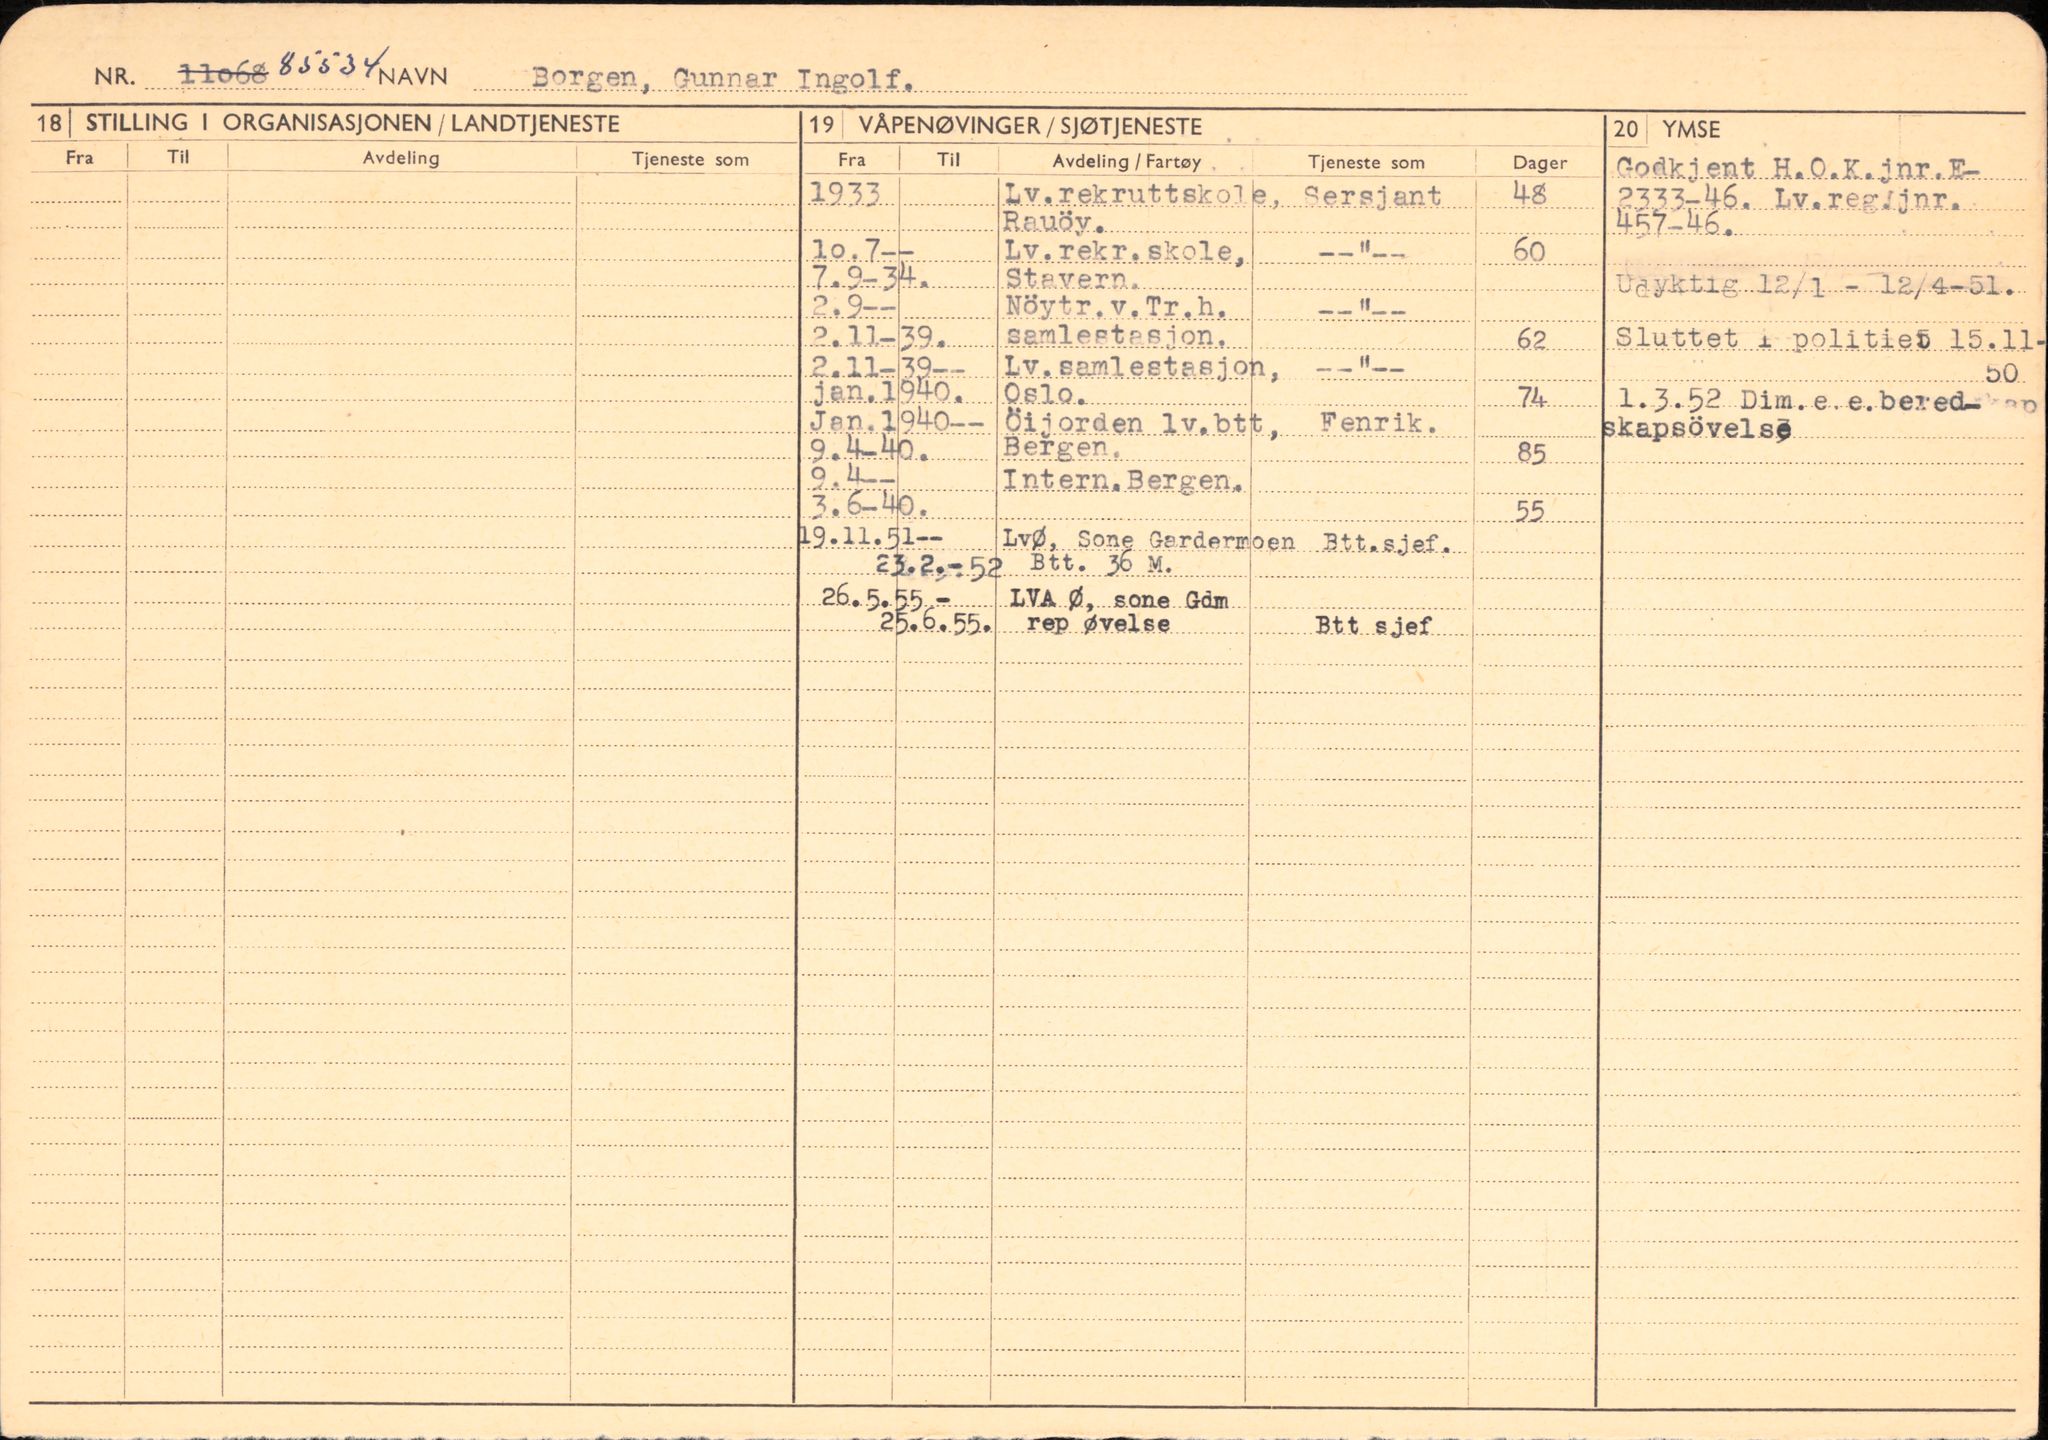 NR. 11068 85534 NAVN Borgen, Gunnar Ingolf.
18 STILLING I ORGANISASJONEN / LANDTJENESTE
Fra Til Avdeling Tjeneste som
19 VÅPENØVINGER / SJØTJENESTE
Fra Til Avdeling / Fartøy Tjeneste som Dager
1933 Lv.rekruttskole, Sersjant 48
Rauöy.
10.7-- Lv.rekr.skole, --"-- 60
7.9-34. Stavern.
2.9-- Nöytr.v.Tr.h. --"--
2.11-39. samlestasjon. 62
2.11-39-- Lv.samlestasjon, --"--
jan.1940. Oslo. 74
Jan.1940-- Öijorden lv.btt, Fenrik.
9.4-40. Bergen. 85
9.4-- Intern.Bergen.
3.6-40. 55
19.11.51-- LvØ, Sone Gardermoen Btt.sjef.
23.2.-52 Btt. 36 M.
26.5.55 - LVA Ø, sone Gdm
25.6.55. rep øvelse Btt sjef
20 YMSE
Godkjent H.O.K.jnr.E-
2333-46. Lv.reg.jnr.
457-46.
Udyktig 12/1 - 12/4-51.
Sluttet i politiet 15.11-
50
1.3.52 Dim.e.e.bered-
skapsövelse